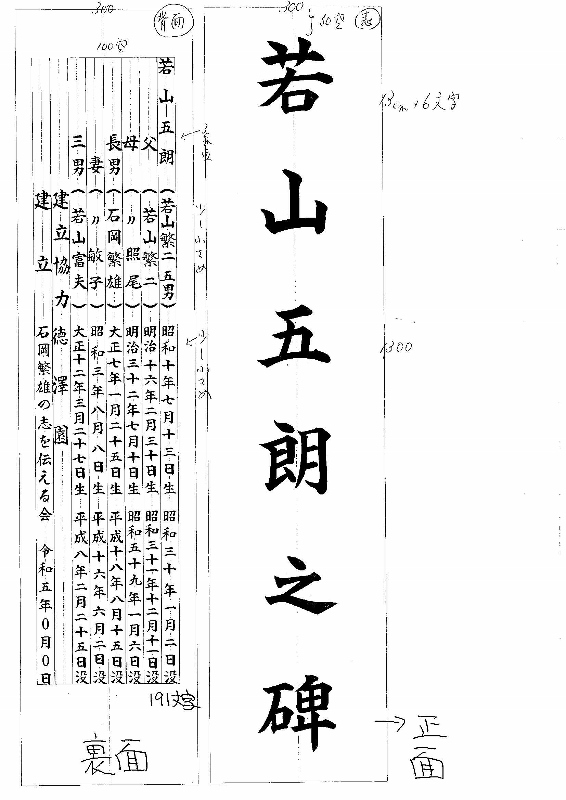 300
50空
表
若山五朗之碑
13cm 6文字
1300
→正面
300
背面
100空
若山五朗(若山繁二 五男)昭和十年七月十三日生 昭和三十年一月二日没
父(若山繁二)明治十六年二月三十日生 昭和三十一年十二月十一日没
母(〃 照尾)明治三十二年七月十日生 昭和五十九年一月六日没
長男(石岡繁雄)大正七年一月二十五日生 平成十八年八月十五日没
妻(〃 敏子)昭和三年八月八日生 平成十六年六月二日没
三男(若山富夫)大正十二年三月二十七日生 平成八年二月二十五日没
建立協力 徳澤園
建立 石岡繁雄の志を伝える会 令和五年0月0日
少し小さめ
少し小さめ
191文字
裏面